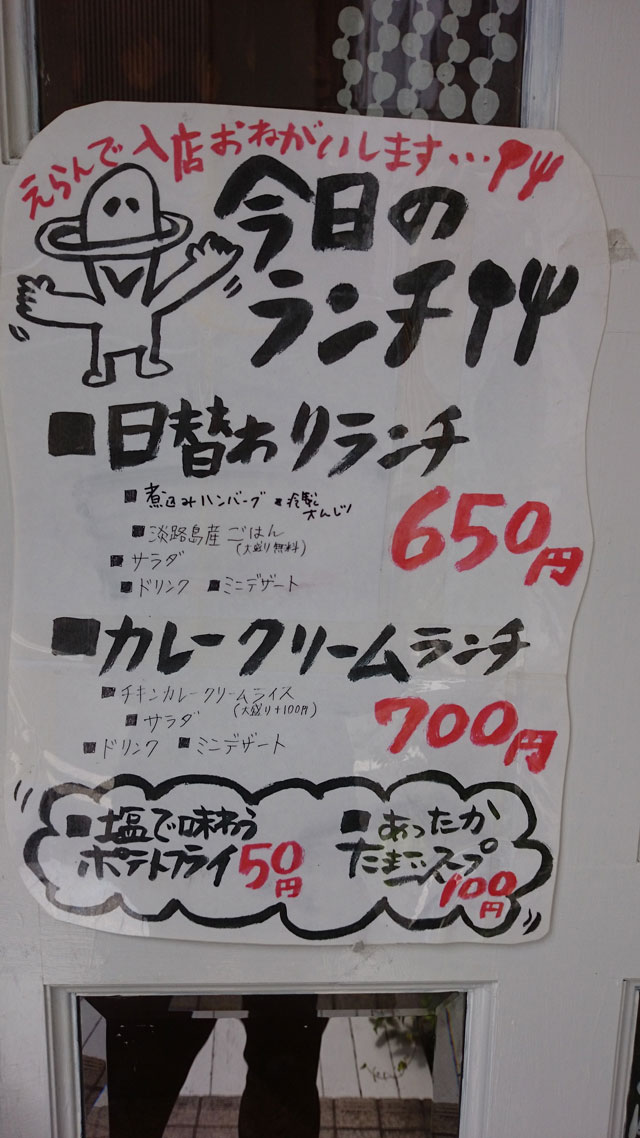 えらんで入店おねがいします・・・
今日の
ランチ
■日替わりランチ
■煮込みハンバーグ
■淡路島産ごはん
(大盛り無料)
650円
■サラダ
■ドリンク ■ミニデザート
■カレークリームランチ
■チキンカレークリームライス
(大盛り+100円)
■サラダ
700円
■ドリンク ■ミニデザート
■塩で味わう
ポテトフライ 50円
■あったか
たまごスープ
100円